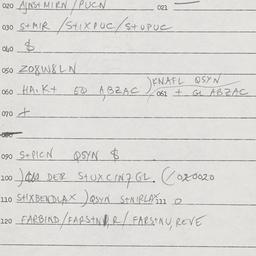 020 AJNS+MIRN / PUCN 021
030 S+MIR / S+IXPUC / S+UPUC
040 $
050 ZO8W8LN
060 HAIK+ EO ABZAC ) KNAFL QSYN
061 + GL ABZAC
070 +
080
090 S+PICN QSYN $
100 DER S+UXCIN7GL, 020020
110 S+IXBENDLAX ) QSYN S+NIRLAX 111
120 FARBIND / FARS+NIR / FARS+NU, REVE